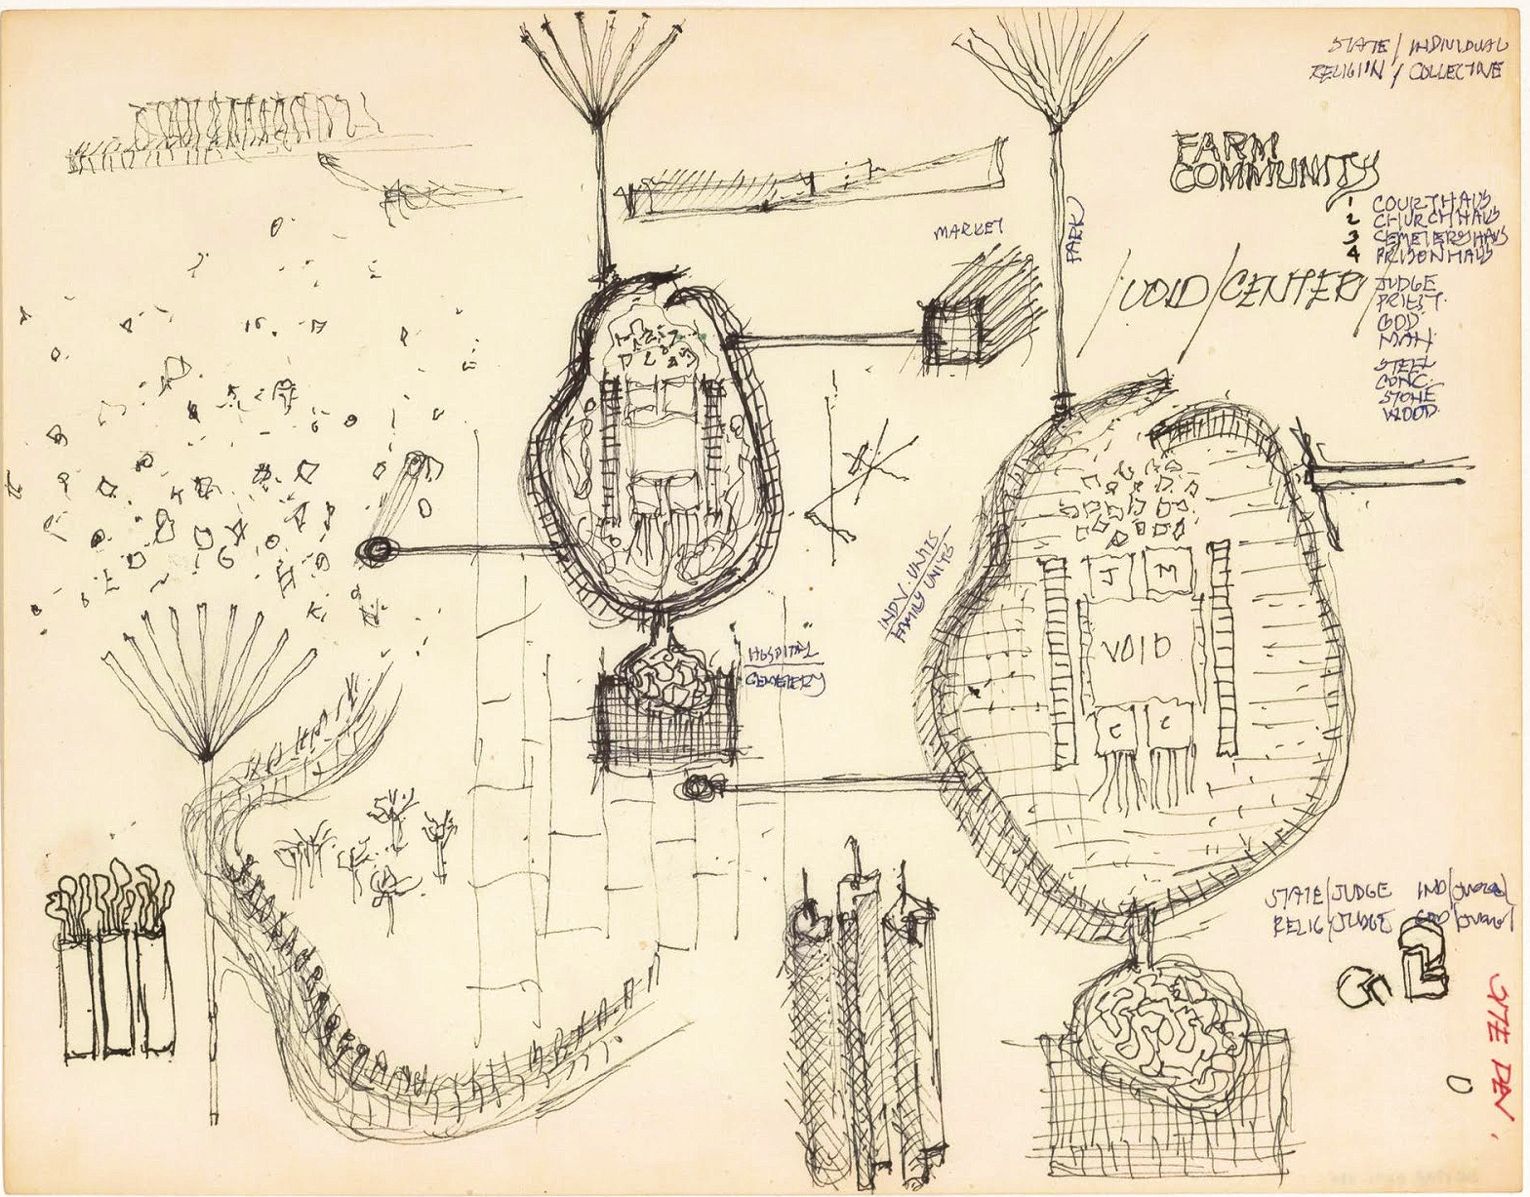 STATE / INDIVIDUAL
RELIGI'N / COLLECTIVE
FARM
COMMUNITY
1 COURTHAUS
2 CHURCHHAUS
3 CEMETERYHAUS
4 PRISONHAUS
/VOID/CENTER/
JUDGE
PRIEST
GOD
MAN
STEEL
CONC.
STONE
WOOD
MARKET
PARK
INDV. UNITS
FAMILY UNITS
J M
VOID
C C
HOSPITAL
CEMETERY
STATE/JUDGE IND/JUDGE
RELIG/JUDGE GOD/JUDGE
SITE DEV.